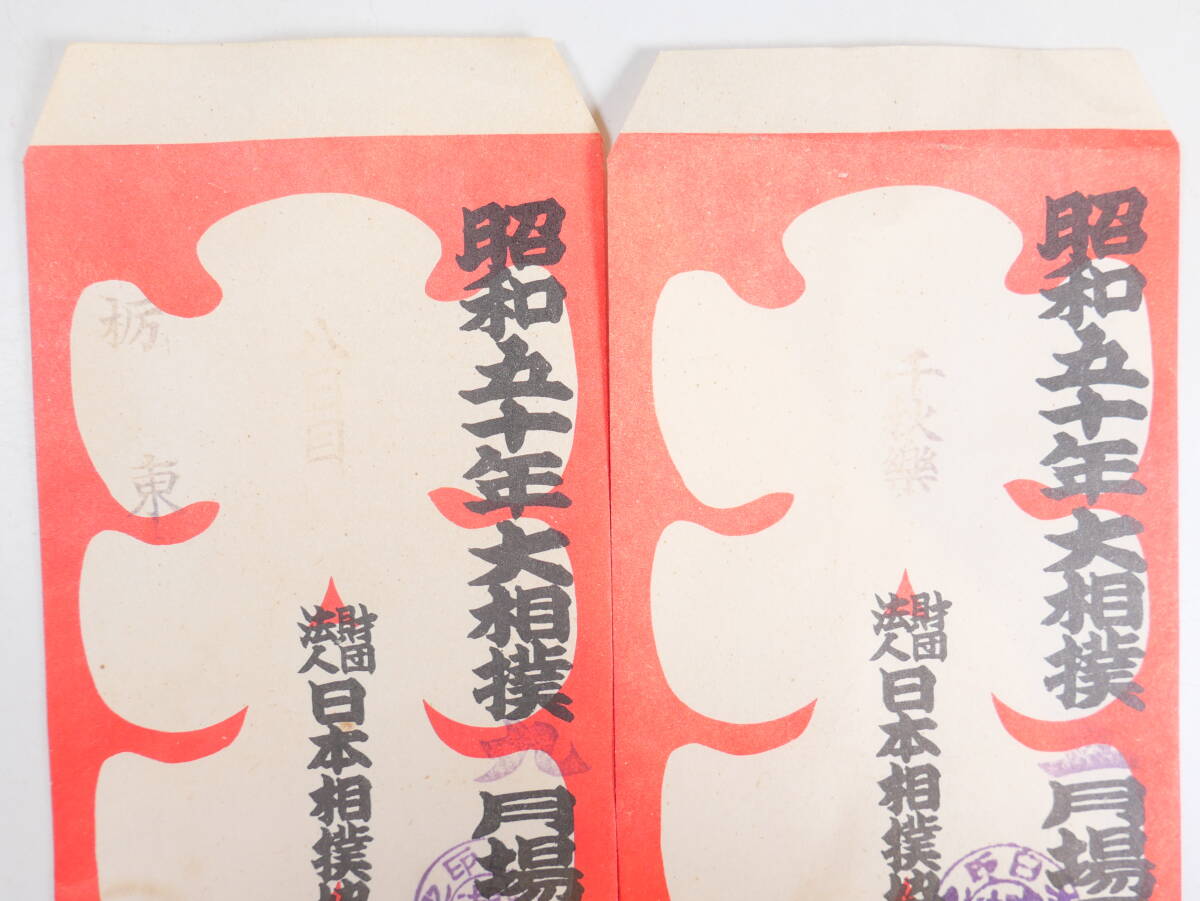 昭和五十年大相撲九月場
財団
法人
日本相撲協
八日目
栃東
昭和五十年大相撲一月場
財団
法人
日本相撲協
千秋樂